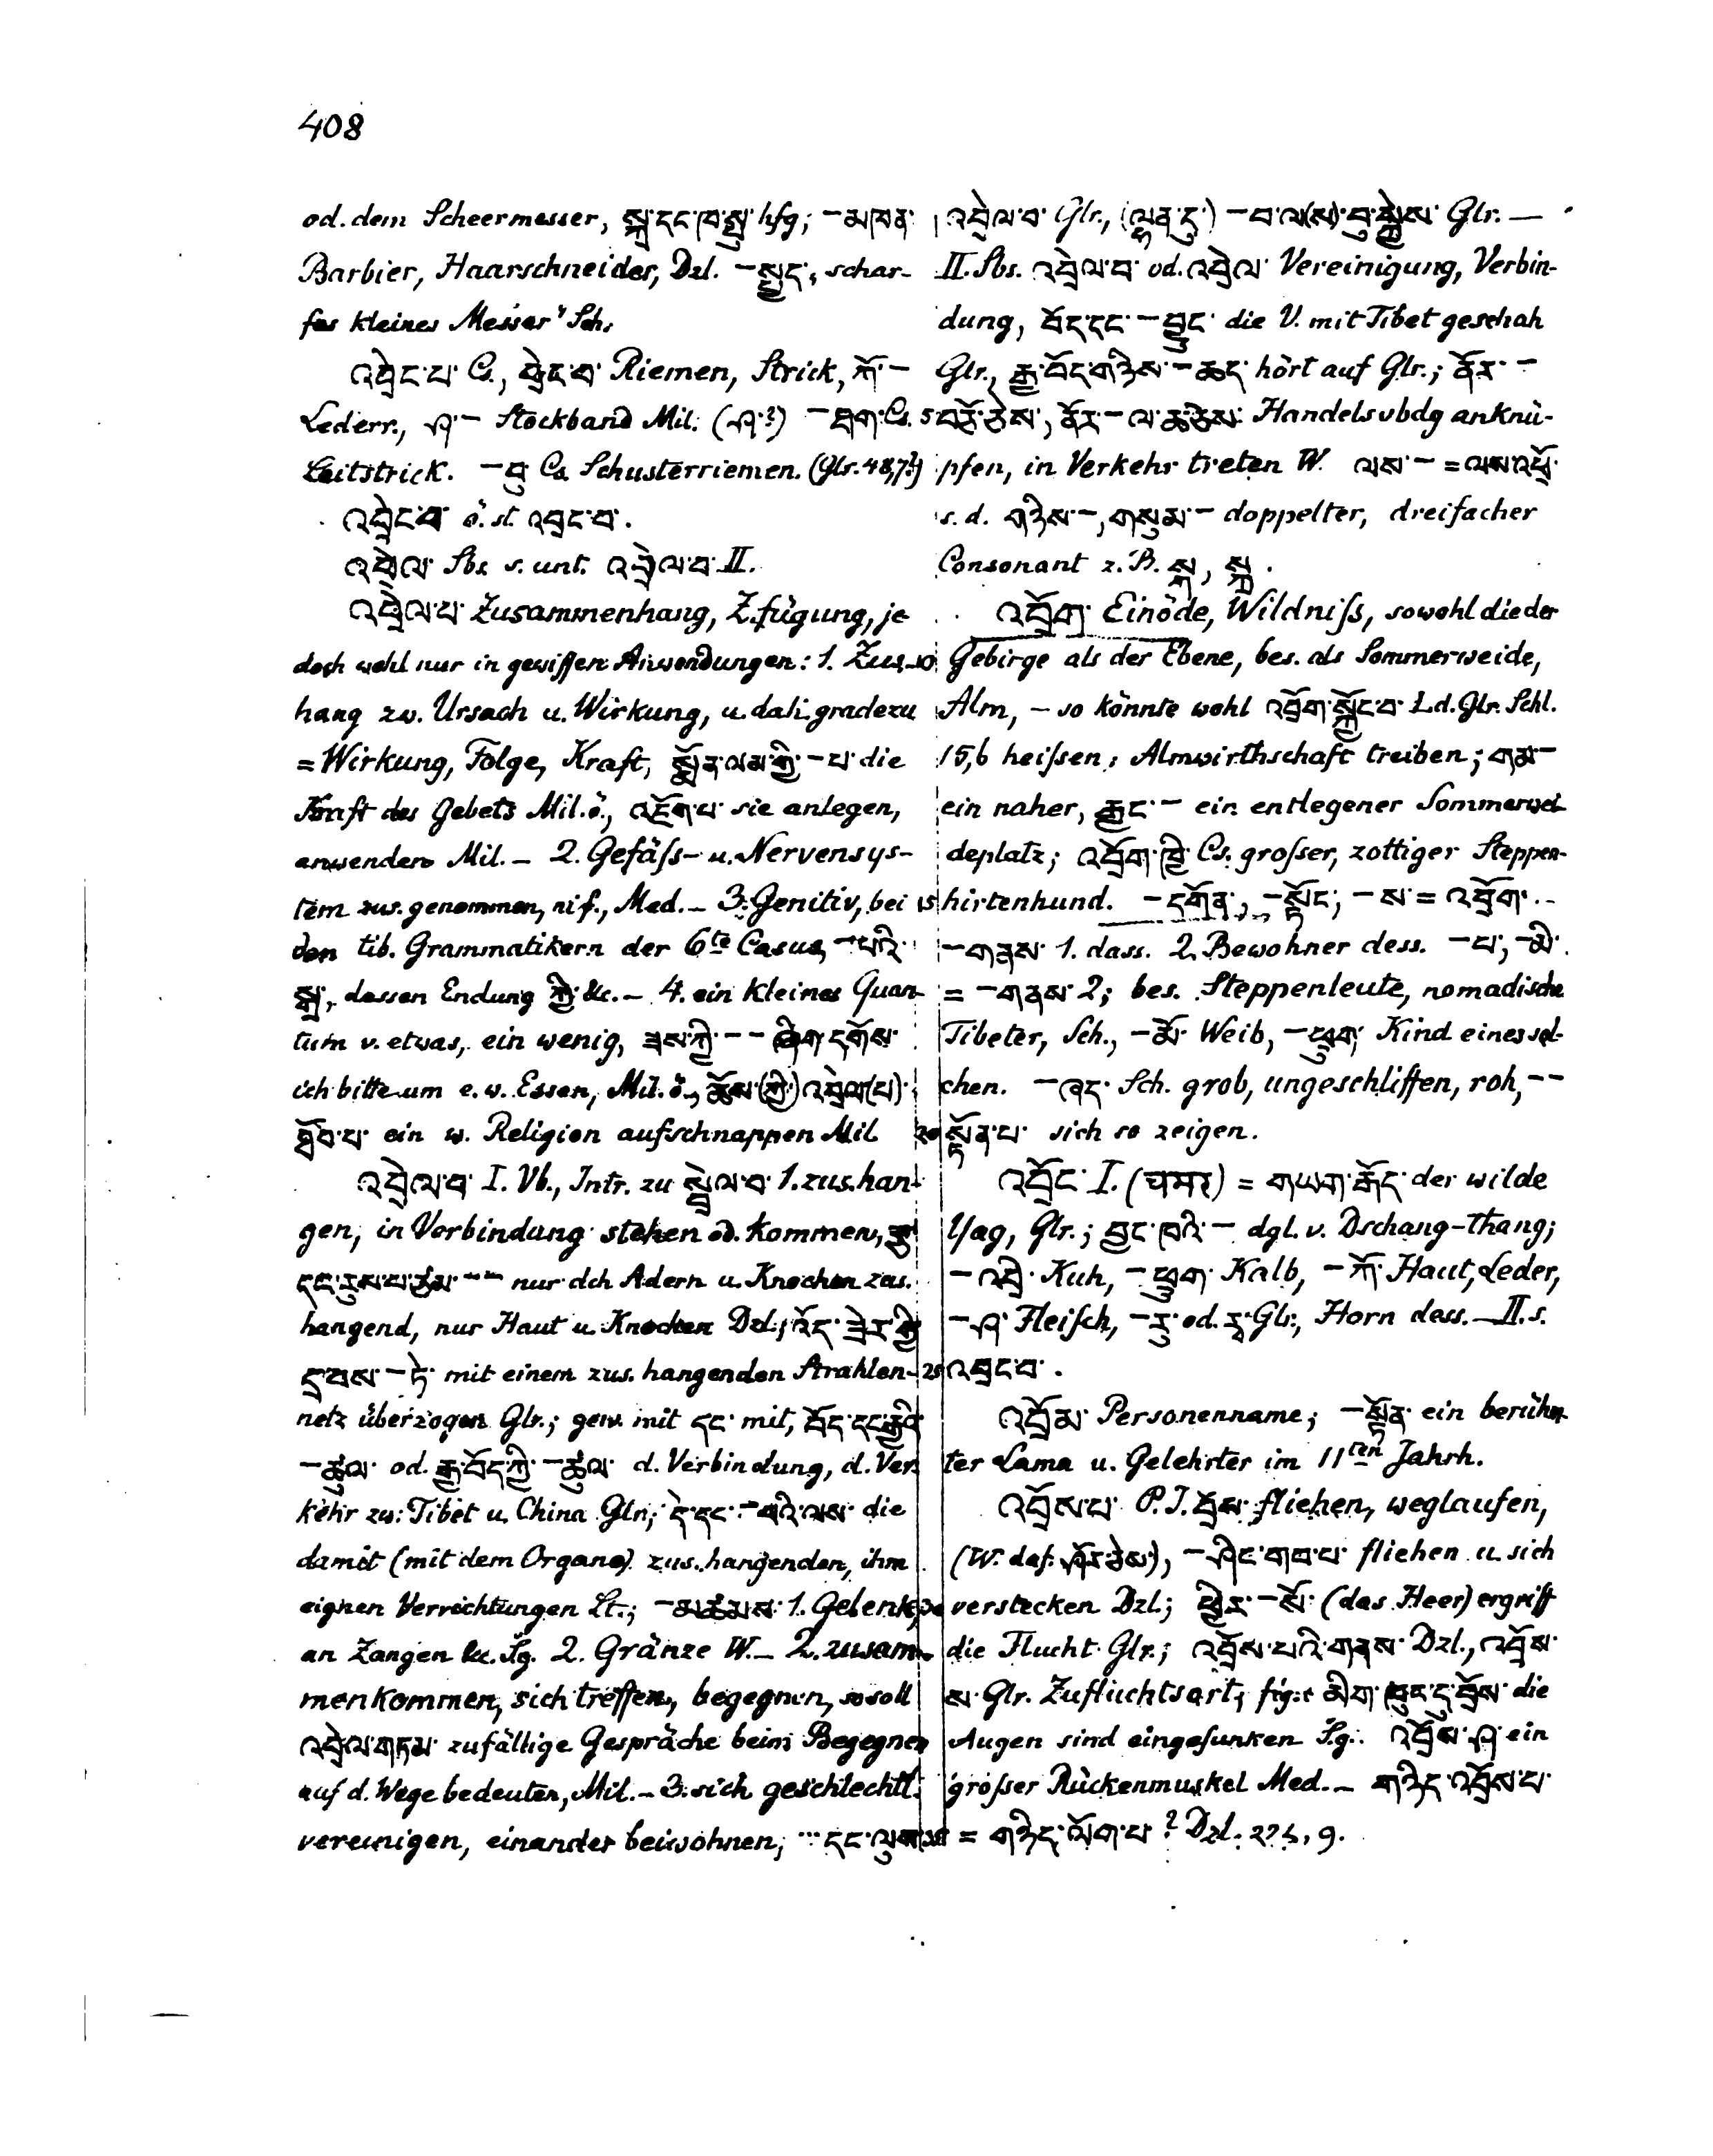 408
od. dem Scheermesser, སྐྲ་དང་ཁ་སྤུ་ hfg; – མཁན་
Barbier, Haarschneider, Dzl. – སྤྱད་, schar-
fes kleines Messer" Sch.
འབྲེང་པ་ Cs., བྲེང་བ་ Riemen, Strick, ཀོ་ –
Lederr., ཤ་ – Stockband Mil. (ཤ་?) – ཐག་ Cs. 5
Leitstrick. – བུ་ Cs. Schusterriemen. (Glr. 48,7?)
འབྲེང་བ་ ö. st. འབྲང་བ་.
འབྲེལ་ Sbs. s. unt. འབྲེལ་བ་ II.
འབྲེལ་པ་ Zusammenhang, Z.fügung, je-
doch wohl nur in gewissen Anwendungen: 1. Zus.- 10
hang zw. Ursach u. Wirkung, u. dah. gradezu
= Wirkung, Folge, Kraft, སྨོན་ལམ་གྱི་ – པ་ die
Kraft des Gebets Mil. ö., འཇོག་པ་ sie anlegen,
anwenden Mil. – 2. Gefäss- u. Nervensys-
tem zus. genommen, nif., Med. – 3. Genitiv, bei 15
den tib. Grammatikern der 6te Casus, – པའི་
སྒྲ་, dessen Endung ཀྱི་ &c. – 4. ein kleines Quan-
tum v. etwas, ein wenig, ཟས་ཀྱི་ – – ཞིག་དགོས་
ich bitte um e. w. Essen, Mil. ö., ཆོས་(ཀྱི་)འབྲེལ་(པ)་
ཐོབ་པ་ ein w. Religion aufschnappen Mil. 20
འབྲེལ་བ་ I. Vb., Intr. zu སྦྲེལ་བ་ 1. zus. han-
gen, in Verbindung stehen od. kommen, རྩ་
དང་རུས་པ་ཙམ་ – – nur dch Adern u. Knochen zus.
hangend, nur Haut u. Knochen Dzl.; འོད་ཟེར་གྱི་
དྲ་བས་ – ཏེ་ mit einem zus. hangenden Strahlen- 25
netz überzogen Glr.; gew. mit དང་ mit, བོད་དང་རྒྱའི་
– ཚུལ་ od. རྒྱ་བོད་ཀྱི་ – ཚུལ་ d. Verbindung, d. Ver-
kehr zw. Tibet u. China Glr.; དེ་དང་ – བའི་ལས་ die
damit (mit dem Organe) zus. hangenden, ihm
eignen Verrichtungen Lt.; – མཚམས་ 1. Gelenk, 30
an Zangen &c. Sg. 2. Gränze W. – 2. zusam-
menkommen, sich treffen, begegnen, so soll
འབྲེལ་གཏམ་ zufällige Gespräche beim Begegnen
auf d. Wege bedeuten, Mil. – 3. sich geschlechtl.
vereinigen, einander beiwohnen, ... དང་ལུས་ 35
འབྲེལ་བ་ Glr., (ལྷན་དུ་) – བ་ལ(ས)་བུ་སྐྱེས་ Glr. –
II. Sbs. འབྲེལ་བ་ od. འབྲེལ་ Vereinigung, Verbin-
dung, བོད་དང་ – བྱུང་ die V. mit Tibet geschah
Glr., རྒྱ་བོད་གཉིས་ – ཆད་ hört auf Glr.; ཚོང་ –
བརྩོ་ཅེས་, ཚོང་ – ལ་ཆ་ཅེས་ Handelsvbdg anknü-
pfen, in Verkehr treten W. ལས་ – = ལས་འཕྲོ་
s. d. གཉིས་ –, གསུམ་ – doppelter, dreifacher
Consonant z. B. སྐ, སྐྲ.
འབྲོག་ Einöde, Wildniss, sowohl die der
Gebirge als der Ebene, bes. als Sommerweide,
Alm, – so könnte wohl འབྲོག་སྐྱོང་བ་ Ld. Glr. Schl.
15,b heissen: Almwirthschaft treiben; གམ་ –
ein naher, རྒྱང་ – ein entlegener Sommerwei-
deplatz; འབྲོག་ཁྱི་ Cs. grosser, zottiger Steppen-
hirtenhund. – དགོན་, – སྟོང་, – ས་ = འབྲོག་. –
– གནས་ 1. dass. 2. Bewohner dess. – པ་, – མི་
= – གནས་ 2; bes. Steppenleute, nomadische
Tibeter, Sch., – མོ་ Weib, – ཕྲུག་ Kind eines sol-
chen. – ཞད་ Sch. grob, ungeschliffen, roh, – –
སྟོན་པ་ sich so zeigen.
འབྲོང་ I. (चमर) = གཡག་རྒོད་ der wilde
Yag, Glr.; བྱང་ཁའི་ – dgl. v. Dschang-thang;
– འབྲི་ Kuh, – ཕྲུག་ Kalb, – ཀོ་ Haut, Leder,
– ཤ་ Fleisch, – རུ་ od. རྭ་ Glr., Horn dess. – II. s.
འབྲང་བ་.
འབྲོམ་ Personenname; – སྟོན་ ein berühm-
ter Lama u. Gelehrter im 11ten Jahrh.
འབྲོས་པ་ P. I. བྲོས་ fliehen, weglaufen,
(W. daf. ཤོར་ཅེས་), – ཤིང་གབ་པ་ fliehen u. sich
verstecken Dzl.; ཕྱིར་ – སོ་ (das Heer) ergriff
die Flucht Glr.; འབྲོས་པའི་གནས་ Dzl., འབྲོས་
ས་ Glr. Zufluchtsort; fig.: མིག་ཁུང་དུ་བྲོས་ die
Augen sind eingesunken Sg. འབྲོས་ཤ་ ein
grosser Rückenmuskel Med. – གཉིད་འབྲོས་པ་
= གཉིད་ལོག་པ་? Dzl. 275, 9.